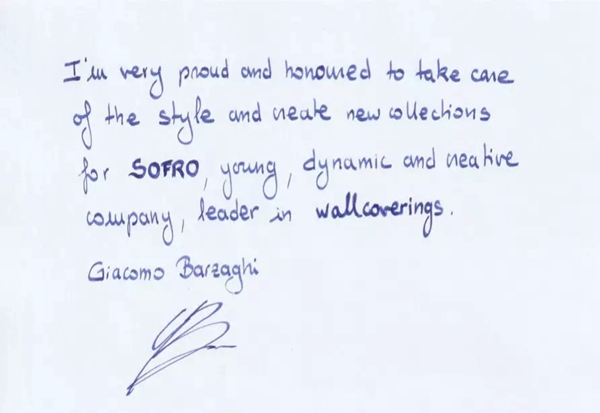 I'm very proud and honoured to take care
of the style and create new collections
for SOFRO, young, dynamic and creative
company, leader in wallcoverings.
Giacomo Barzaghi